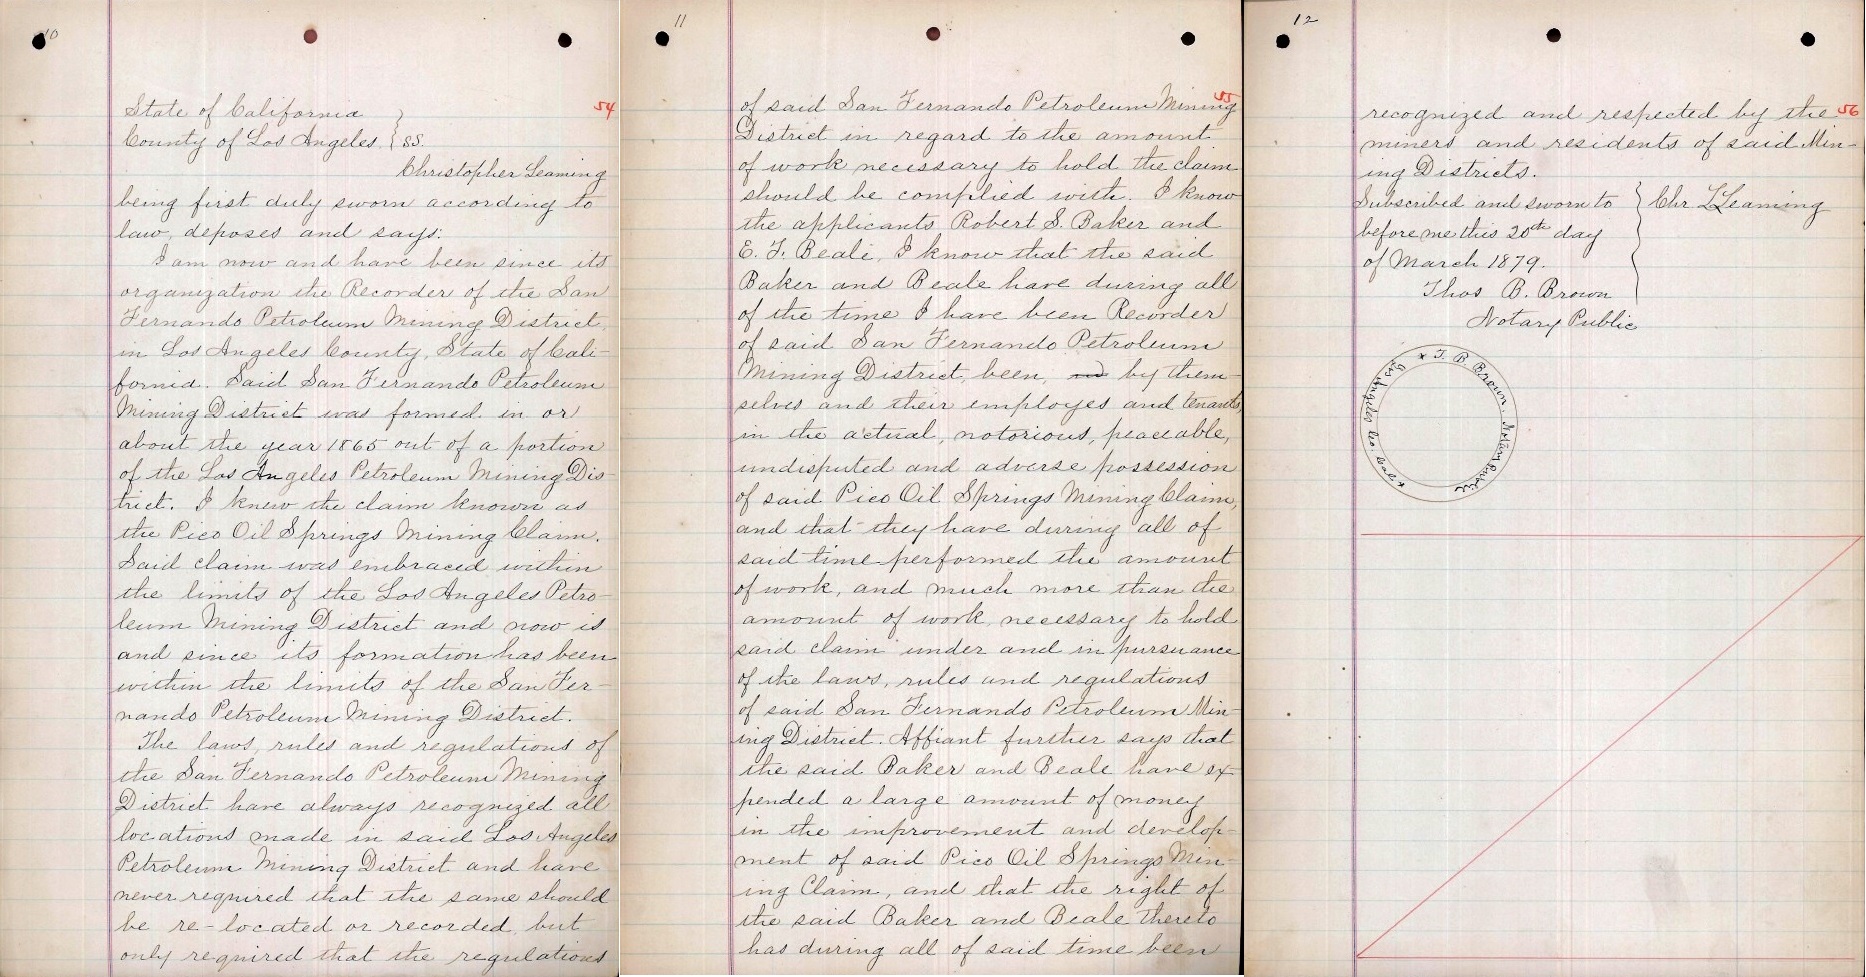 10
54
State of California
County of Los Angeles } ss.
Christopher Leaming
being first duly sworn according to
law, deposes and says:
I am now and have been since its
organization the Recorder of the San
Fernando Petroleum Mining District,
in Los Angeles County, State of Cali-
fornia. Said San Fernando Petroleum
Mining District was formed in or
about the year 1865 out of a portion
of the Los Angeles Petroleum Mining Dis-
trict. I knew the claim known as
the Pico Oil Springs Mining Claim.
Said claim was embraced within
the limits of the Los Angeles Petro-
leum Mining District and now is
and since its formation has been
within the limits of the San Fer-
nando Petroleum Mining District.
The laws, rules and regulations of
the San Fernando Petroleum Mining
District have always recognized all
locations made in said Los Angeles
Petroleum Mining District and have
never required that the same should
be re-located or recorded, but
only required that the regulations
11
55
of said San Fernando Petroleum Mining
District in regard to the amount
of work necessary to hold the claim
should be complied with. I know
the applicants Robert S. Baker and
E. F. Beale, I know that the said
Baker and Beale have during all
of the time I have been Recorder
of said San Fernando Petroleum
Mining District, been, and by them-
selves and their employes and tenants,
in the actual, notorious, peaceable,
undisputed and adverse possession
of said Pico Oil Springs Mining Claim,
and that they have during all of
said time performed the amount
of work, and much more than the
amount of work necessary to hold
said claim under and in pursuance
of the laws, rules and regulations
of said San Fernando Petroleum Min-
ing District. Affiant further says that
the said Baker and Beale have ex-
pended a large amount of money
in the improvement and develop-
ment of said Pico Oil Springs Min-
ing Claim, and that the right of
the said Baker and Beale thereto
has during all of said time been
12
56
recognized and respected by the
miners and residents of said Min-
ing Districts.
Subscribed and sworn to } Chr L Leaming
before me this 20th day
of March 1879.
Thos B. Brown
Notary Public
* T. B. Brown, Notary Public
Los Angeles Co. Cal. *